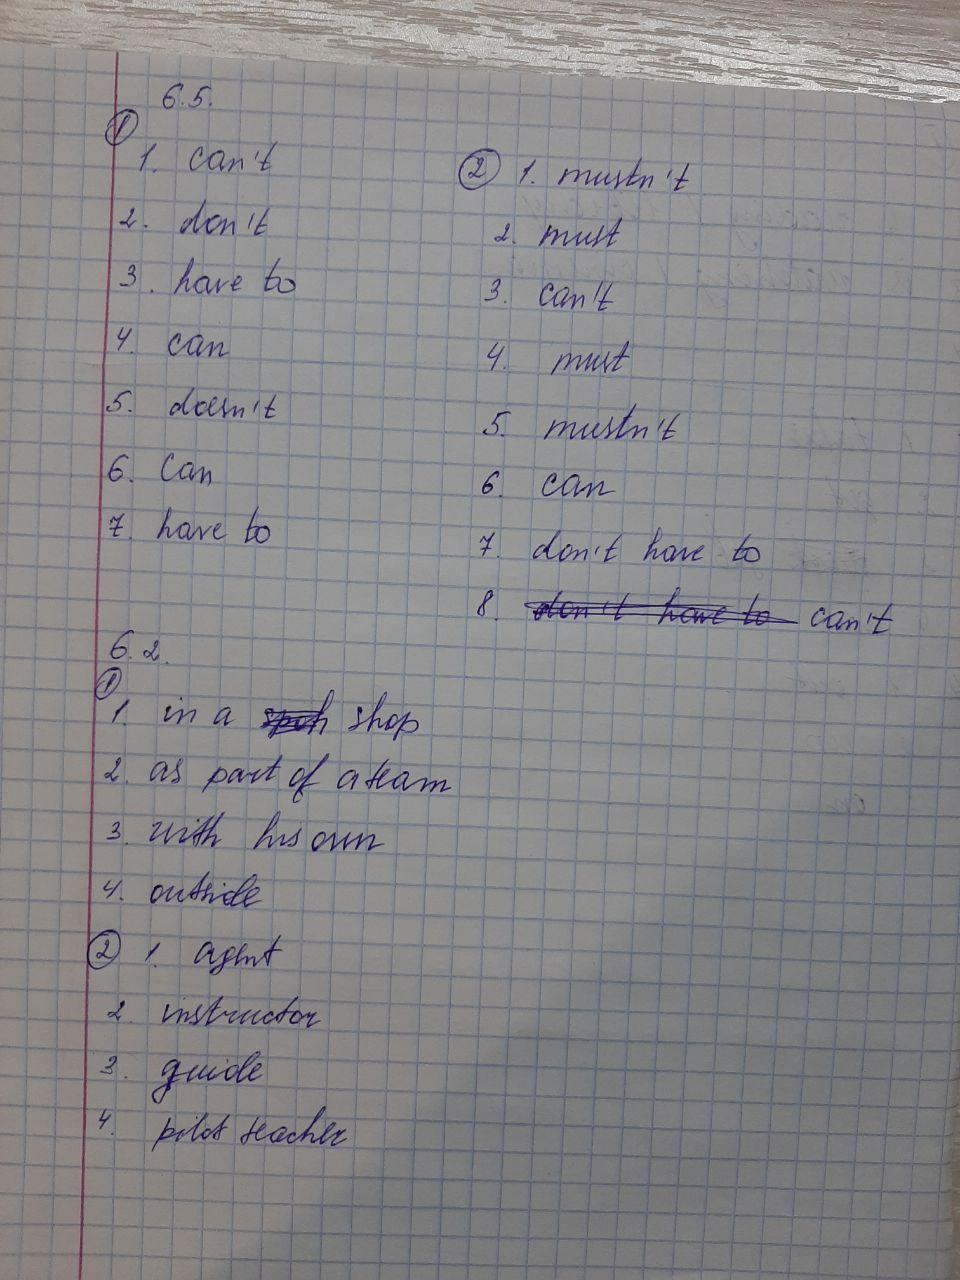 6.5.
1
1. can't
2. don't
3. have to
4. can
5. doesn't
6. Can
7. have to
2 1. mustn't
2. must
3. can't
4. must
5. mustn't
6. can
7. don't have to
8. don't have to can't
6.2.
1
1. in a shop
2. as part of a team
3. with his own
4. outside
2 1. agent
2. instructor
3. guide
4. pilot teacher